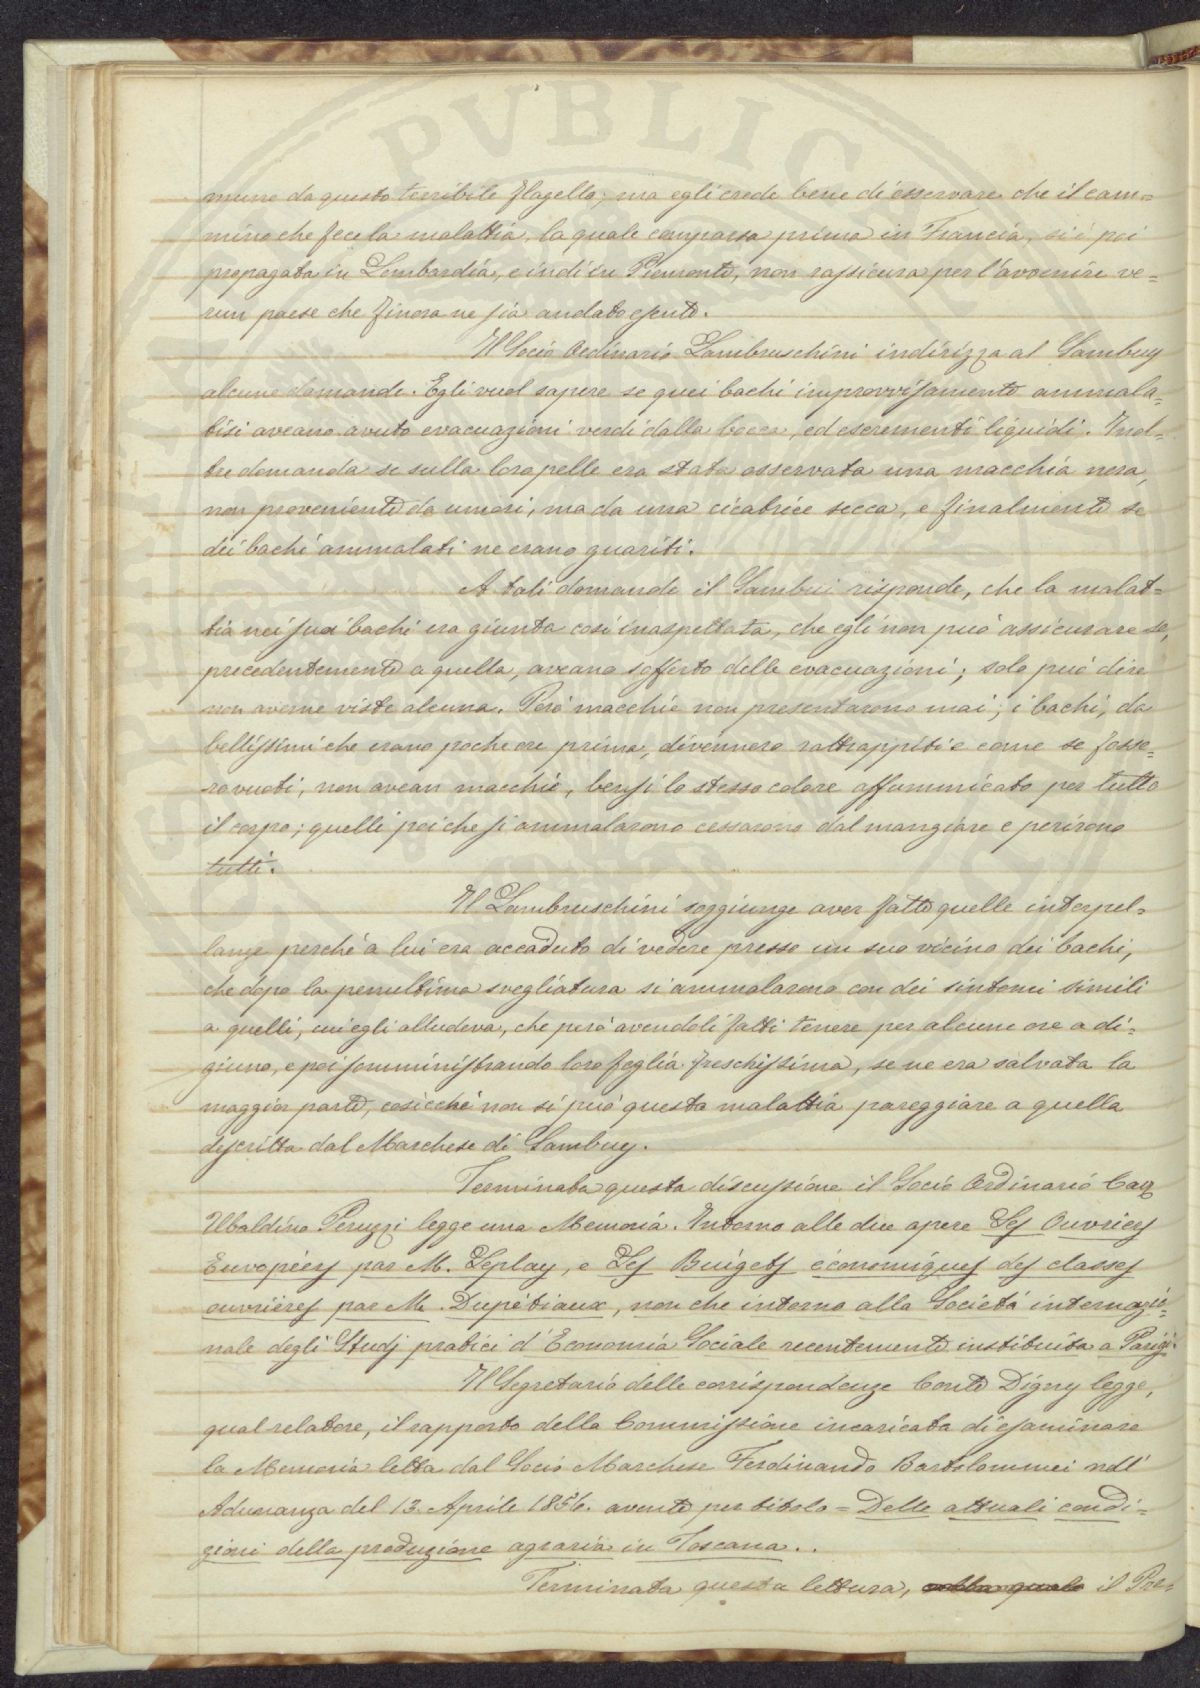 PVBLICAE
mune da questo terribile flagello; ma egli crede bene di osservare che il cam=
mino che fece la malattia, la quale comparsa prima in Francia, si è poi
propagata in Lombardia, e indi in Piemonte, non rassicura per l'avvenire ve=
run paese che finora ne sia andato esente.
Il Socio Ordinario Lambruschini indirizza al Sambuy
alcune domande. Egli vuol sapere se quei bachi improvvisamente ammala=
tisi aveano avuto evacuazioni verdi dalla bocca, ed escrementi liquidi. Inol=
tre domanda se sulla loro pelle era stata osservata una macchia nera,
non proveniente da umori, ma da una cicatrice secca, e finalmente se
dei bachi ammalati ne erano guariti.
A tali domande il Sambui risponde, che la malat=
tia nei suoi bachi era giunta così inaspettata, che egli non può assicurare se,
precedentemente a quella, aveano sofferto delle evacuazioni; solo può dire
non averne viste alcuna. Però macchie non presentarono mai; i bachi, da
bellissimi che erano poche ore prima, divennero rattrappiti e come se fosse=
ro vuoti, non avean macchie, bensì lo stesso colore affummicato per tutto
il corpo; quelli poi che si ammalarono cessarono dal mangiare e perirono
tutti.
Il Lambruschini soggiunge aver fatte quelle interpel=
lanze perché a lui era accaduto di vedere presso un suo vicino dei bachi,
che dopo la penultima svegliatura si ammalarono con dei sintomi simili
a quelli, cui egli alludeva, che però avendoli fatti tenere per alcune ore a di=
giuno, e poi somministrando loro foglia freschissima, se ne era salvata la
maggior parte, cosicché non si può questa malattia pareggiare a quella
descritta dal Marchese di Sambuy.
Terminata questa discussione il Socio Ordinario Cav.
Ubaldino Peruzzi legge una Memoria. Intorno alle due opere Les Ouvriers
Européens par M. Leplay, e Les Buigets économiques des classes
ouvrières par M. Dupétiaux, non che intorno alla Società internazio=
nale degli Studj pratici d'Economia Sociale recentemente instituita a Parigi.
Il Segretario delle corrispondenze Conte Digny legge,
qual relatore, il rapporto della Commissione incaricata di esaminare
la Memoria letta dal Socio Marchese Ferdinando Bartolommei nell'
Adunanza del 13. Aprile 1856. avente per titolo = Delle attuali condi=
zioni della produzione agraria in Toscana..
Terminata questa lettura, colla quale il Pre=